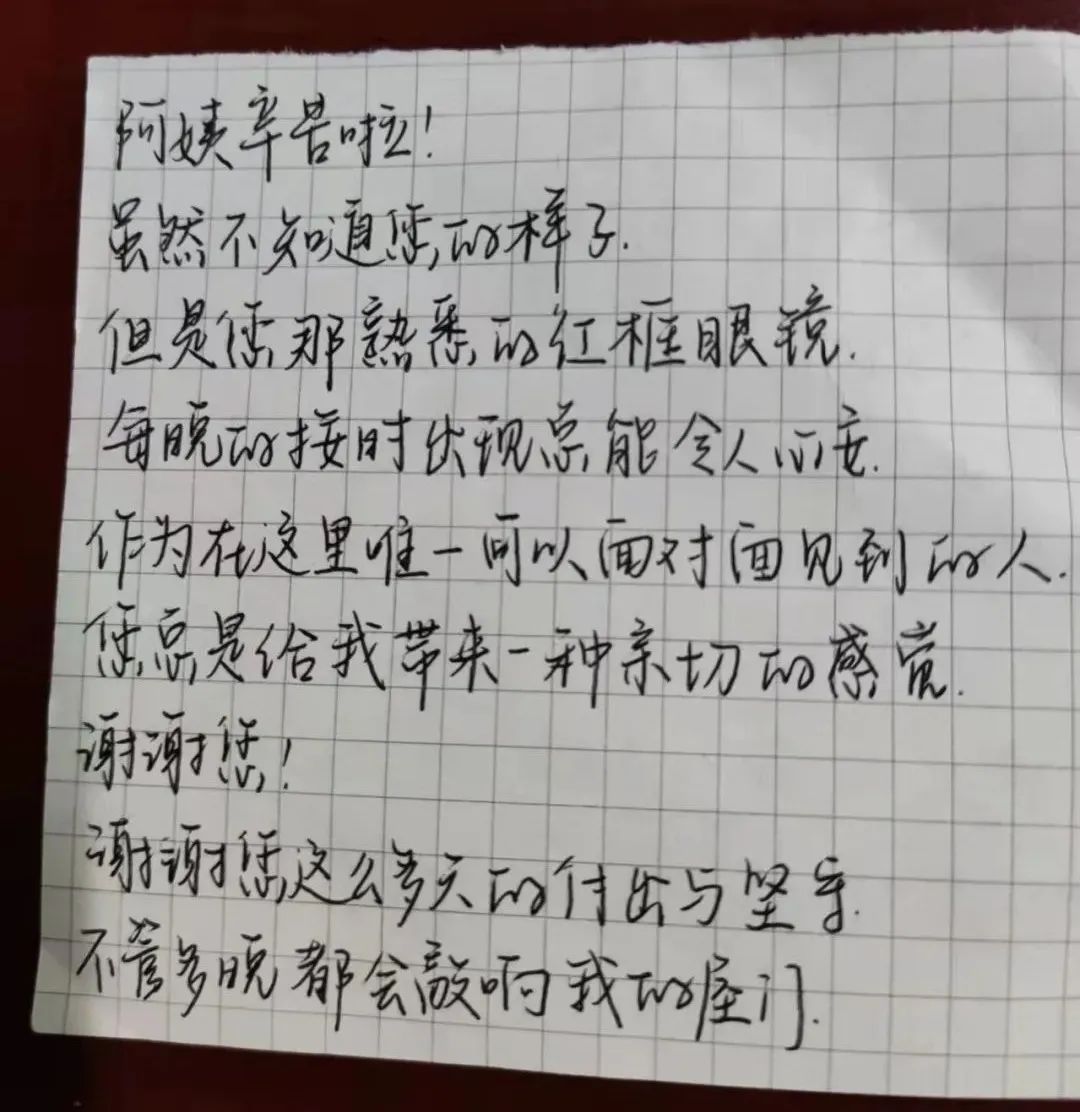 阿姨辛苦啦！
虽然不知道您的样子.
但是您那熟悉的红框眼镜.
每晚的按时出现总能令人心安.
作为在这里唯一可以面对面见到的人.
您总是给我带来一种亲切的感觉.
谢谢您！
谢谢您这么多天的付出与坚守.
不管多晚都会敲响我的屋门.